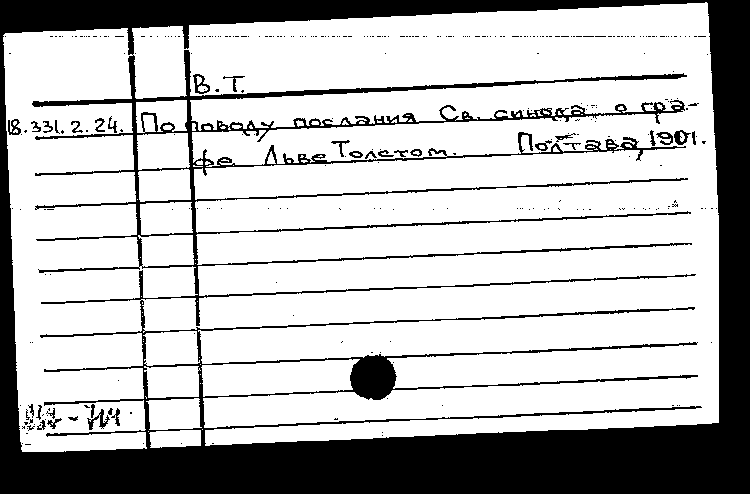 В. Т.
18.331.2.24. По поводу послания Св. синода о гра-
фе Льве Толстом. Полтава, 1901.